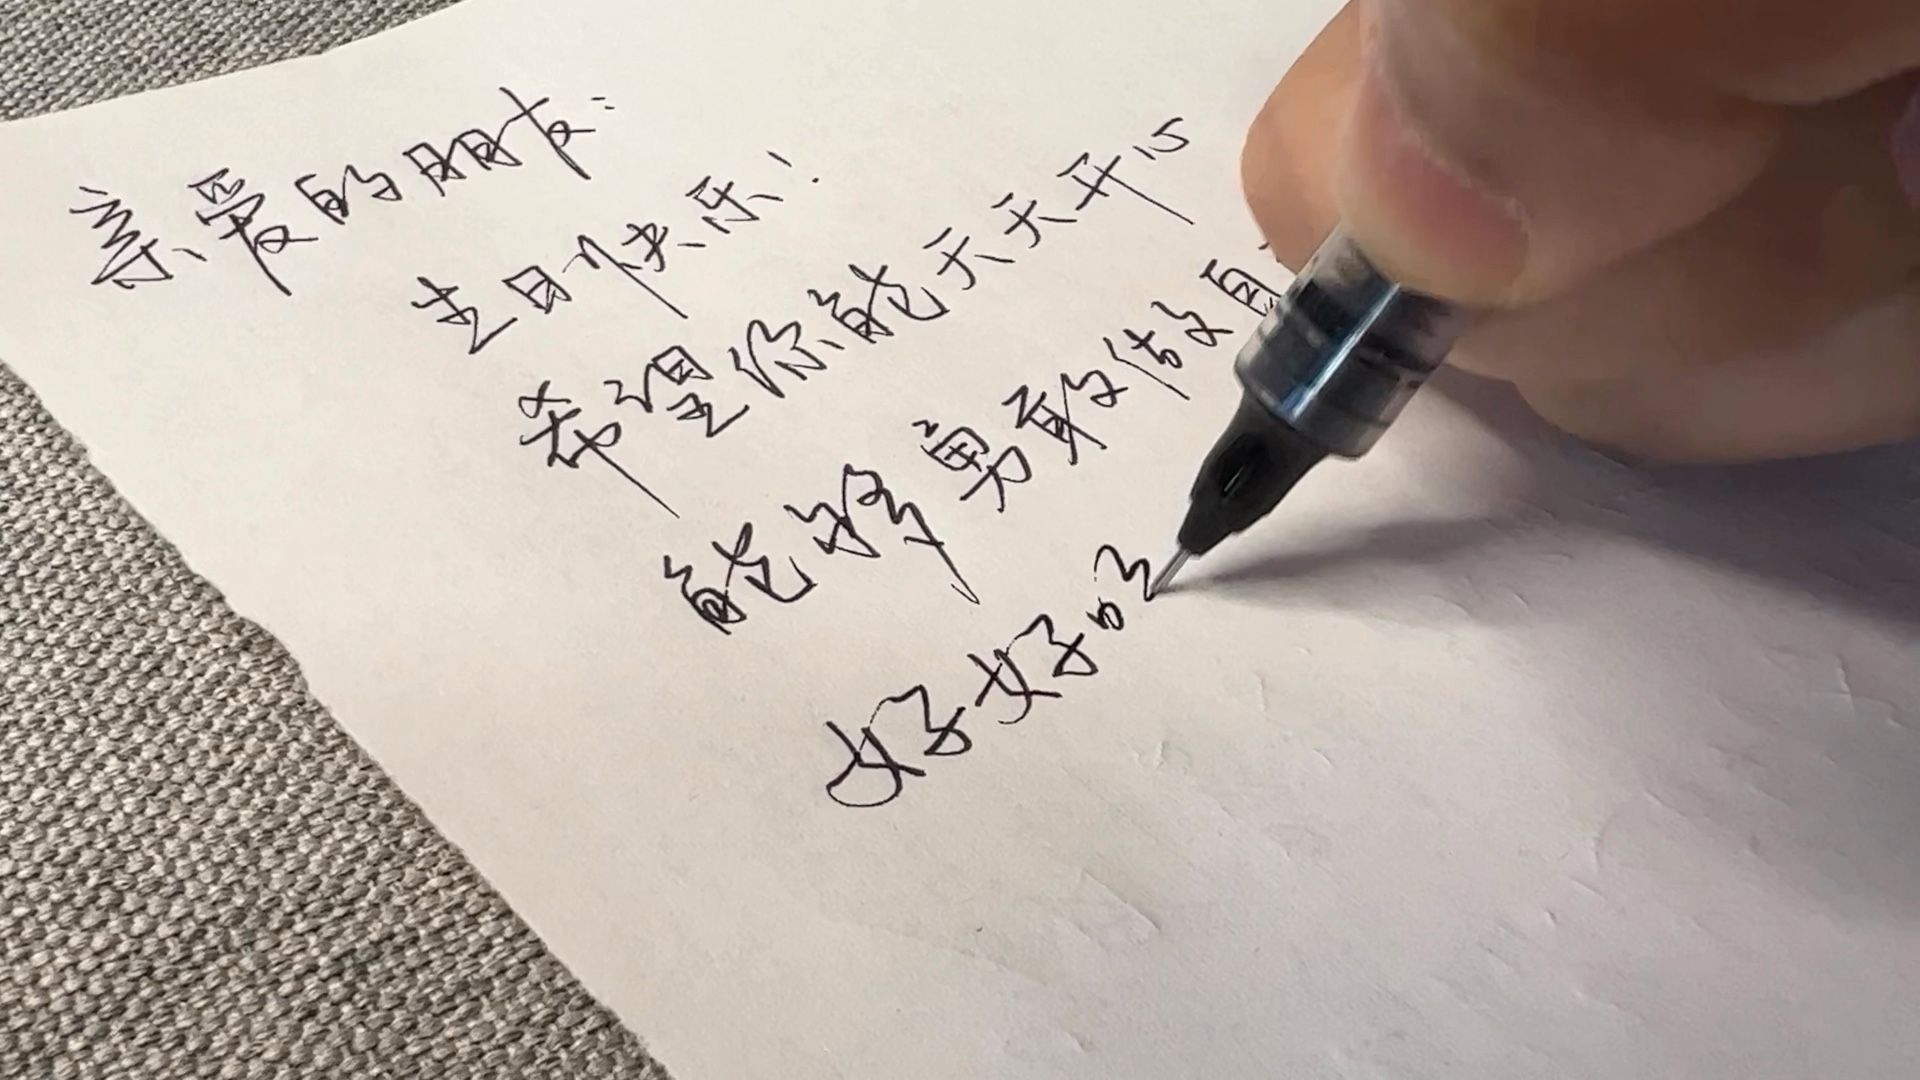 亲爱的朋友:
生日快乐!
希望你能天天开心
能够勇敢做自
好好吃